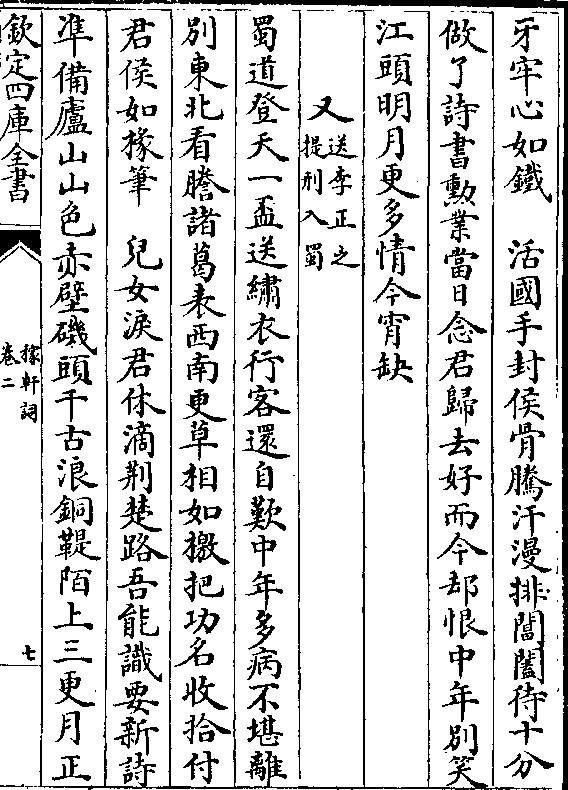 牙牢心如鐵　活國手封侯骨騰汗漫排閶闔待十分
做了詩書勲業當日念君歸去好而今却恨中年別笑
江頭明月更多情今宵缺
又送李正之提刑入蜀
蜀道登天一盃送繡衣行客還自歎中年多病不堪離
別東北看謄諸葛表西南更草相如檄把功名收拾付
君侯如椽筆　兒女淚君休滴荆楚路吾能識要新詩
準備廬山山色赤壁磯頭千古浪銅鞮陌上三更月正
欽定四庫全書
稼軒詞
卷二
七